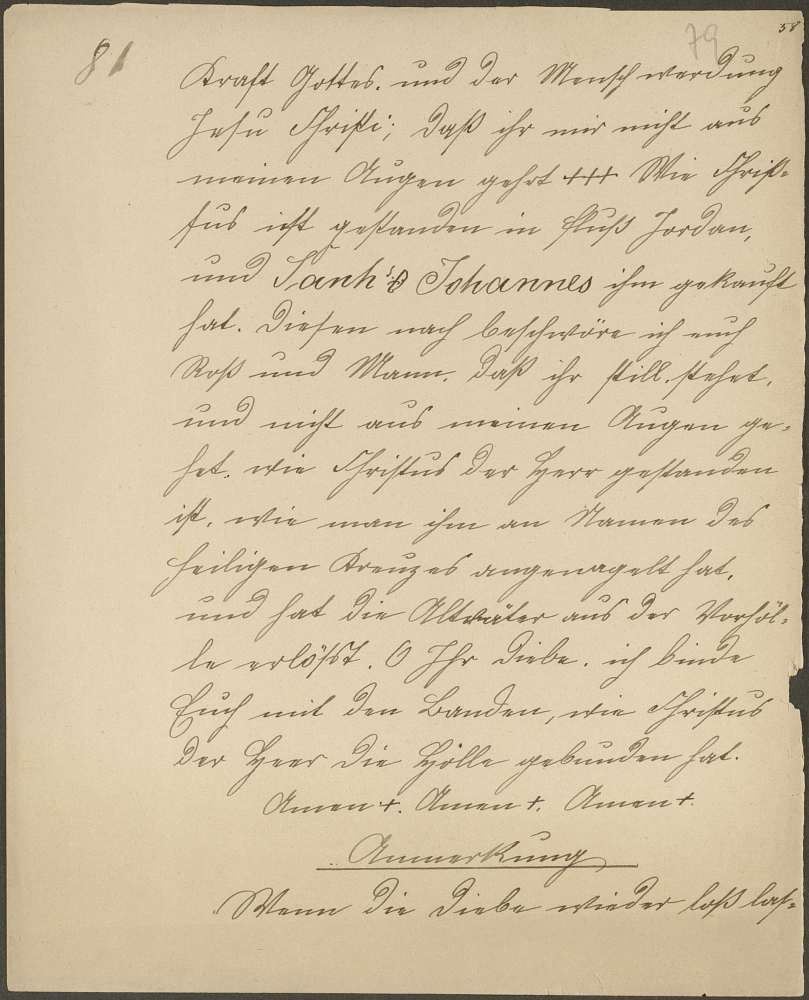 58
79
81
Kraft Gottes. und der Menschwerdung
Jesu Christi; daß ihr mir nicht aus
meinen Augen gehet +++ Wie Chris-
tus ist gestanden in Fluß Jordan,
und Johannes ihm gekauft
hat. Diesen nach beschwöre ich euch
Roß und Mann. daß ihr still stehet,
und nicht aus meinen Augen ge-
het. wie Christus der Herr gestanden
ist, wie man ihm an Namen des
heiligen Kreuzes angenagelt hat,
und hat die Altväter aus der Vorhöl-
le erlößt. O Ihr Diebe. ich binde
Euch mit den Banden, wie Christus
der Heer die Hölle gebunden hat.
Amen +. Amen +. Amen +.
Anmerkung
Wenn die Diebe wieder loß las-